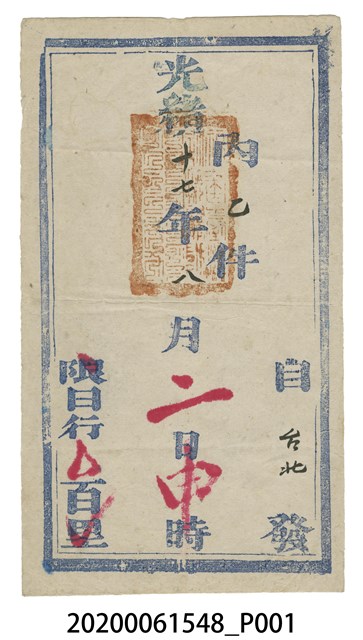 內乙件
自台北發
光緒十七年八月二日申時
限日行百里
20200061548_P001